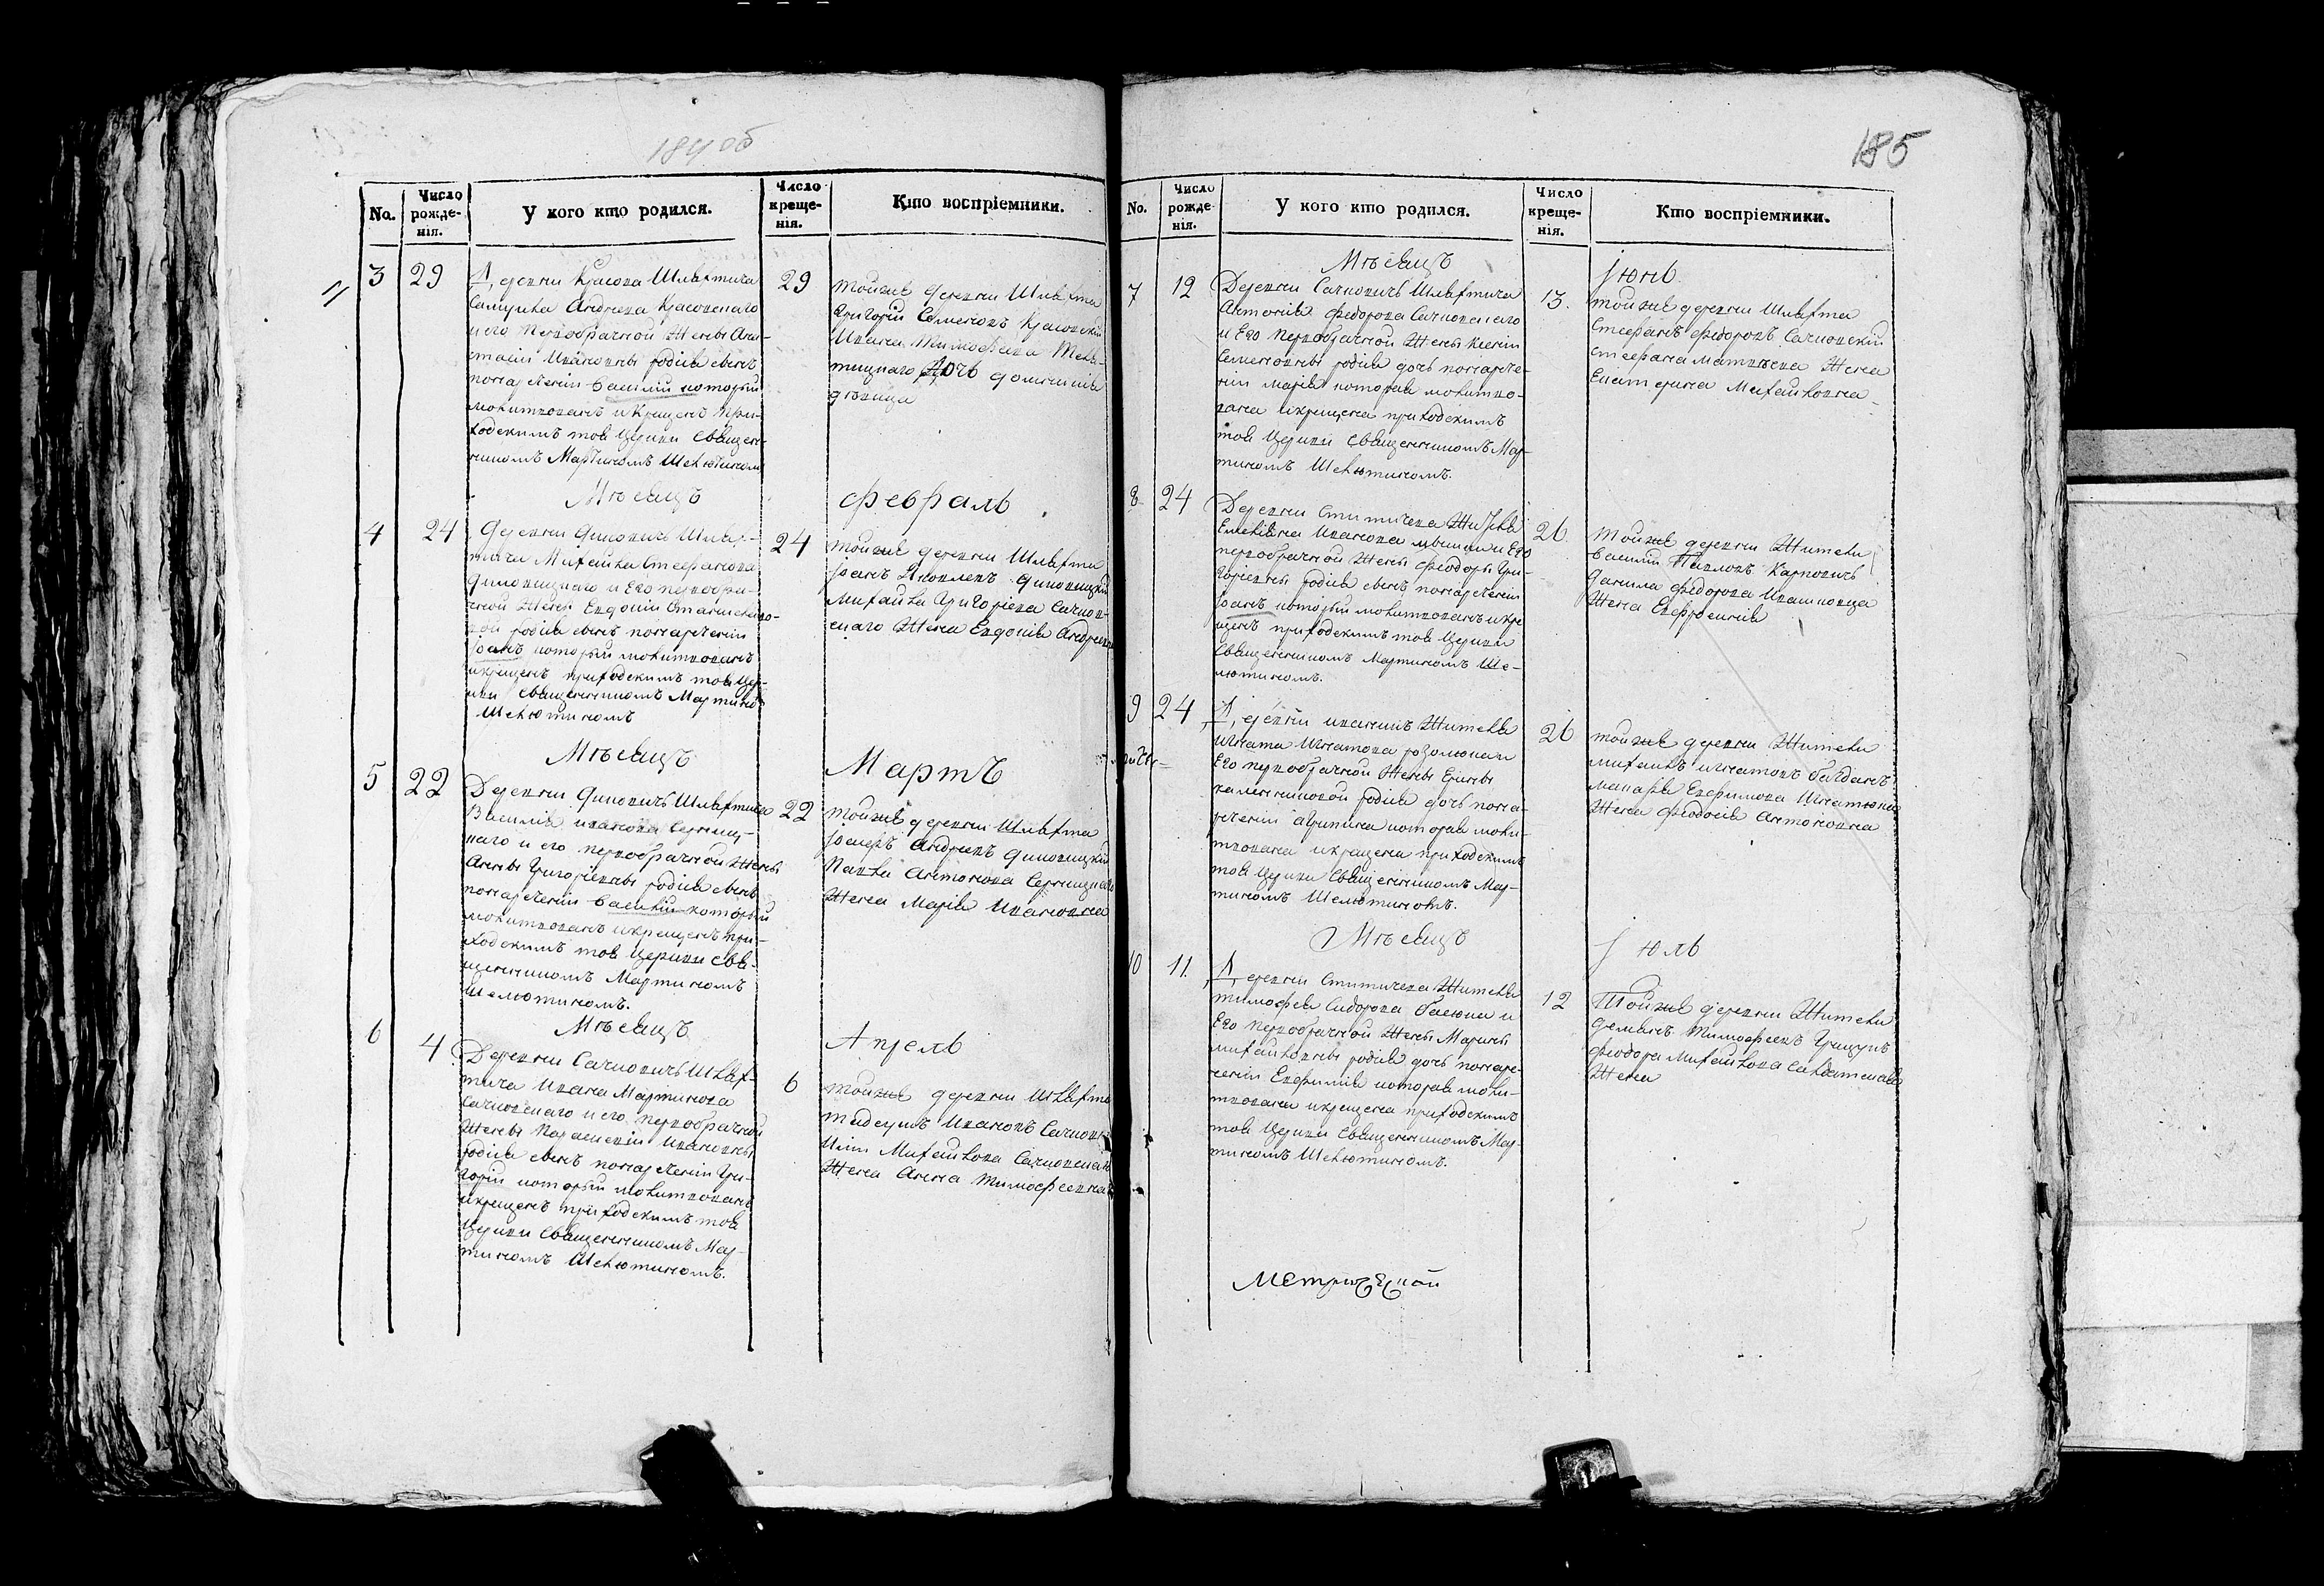 184 об
No.
Число рожде-нія.
У кого кто родился.
Число креще-нія.
Кто воспріемники.
3 29
Деревни Красова Шляхтича
Самуила Андреева Красовскаго
и его первобрачной жены Ана-
стасіи Ивановны родися сынъ
понаречении василій который
молитвованъ и крещенъ при-
ходскимъ тоя церкви священ-
никомъ Мартиномъ Шелютиномъ
29
тойже деревни Шляхта
Григорій Семеновъ Красовскій
Ивана Тимофеева
дочь
девица
Мѣсяцъ
февраль
4 24
деревни Диковичъ Шлях-
тича Михайла Стефанова
Диковицкаго и Его первобра-
чной жены Евдокіи
родися сынъ понаречении
Іоанъ который молитвованъ
и крещенъ приходскимъ тоя цер-
кви священникомъ Мартином
Шелютиномъ
24
тойже деревни Шляхта
Іоанъ Яковлевъ Диковицкій
Михайла Григоріева Сачков-
скаго жена Евдокія Андреевна
Мѣсяцъ
Мартъ
5 22
Деревни Диковичъ Шляхтича
Василія иванова
и его первобрачной жены
Анны Григоріевны родися сынъ
понаречении василій который
молитвованъ и крещенъ при-
ходскимъ тоя церкви свя-
щенникомъ Мартиномъ
Шелютиномъ.
22
тойже деревни Шляхта
Іосифъ Андреевъ Диковицкій
Павла Антонова
жена Марія Ивановна
Мѣсяцъ
Апрель
6 4
Деревни Сачковичъ Шлях-
тича Ивана Мартинова
Сачковскаго и его первобрачной
жены Параскевіи Ивановны
родися сынъ понаречении Гри-
горій который молитвованъ
и крещенъ приходскимъ тоя
церкви священникомъ Мар-
тиномъ Шелютиномъ.
6
тойже деревни Шляхта
Тадеушъ Ивановъ Сачковскій
Иліи Михайлова Сачковскаго
жена Анна Тимофеевна
185
No.
Число рожде нія.
У кого кто родился.
Число креще-нія.
Кто воспріемники.
Мѣсяцъ
Іюнь
7 12
Деревни Сачковичъ Шляхтича
Антонія федорова Сачковскаго
и Его первобрачной жены Ксеніи
Семеновны родися дочь понарече-
ніи Марія которая молитво-
вана и крещена приходскимъ
тоя церкви священникомъ Мар-
тиномъ Шелютиномъ.
13.
тойже деревни Шляхта
Стефанъ федоровъ Сачковскій
стефана Матвѣева жена
Екатерина Михайловна
8 24
Деревни Ститичева Жителя
Емеліана Иванова и Его
первобрачной жены Феодоры Гри-
горіевны родися сынъ понаречении
Іоанъ который молитвованъ и кре
щенъ приходскимъ тоя церкви
священникомъ Мартиномъ Ше-
лютиномъ.
26
тойже деревни Жители
василій Павловъ Карповичъ
Данила федорова Ивашковца
жена Евфросинія
9 24
Деревни иванчицъ Жителя
игната Игнатова
Его первобрачной жены Ерины
родися дочь пона-
речении агрипина которая моли-
твована и крещена приходскимъ
тоя церкви священникомъ Мар-
тиномъ Шелютиномъ.
26
тойже деревни Жители
михаилъ игнатовъ
макара Евфимова
жена Феодосія Антоновна
Мѣсяцъ
Іюль
10 11.
Деревни Ститичева Жителя
тимофея Сидорова и
Его первобрачной жены Марины
михайловны родися дочь понаре-
чении Евфимія которая моли-
твована и крещена приходскимъ
тоя церкви священникомъ Мар-
тиномъ Шелютиномъ.
12
Тойже деревни Жители
Демянъ Тимофеевъ
феодора Михайлова
жена
Метрической